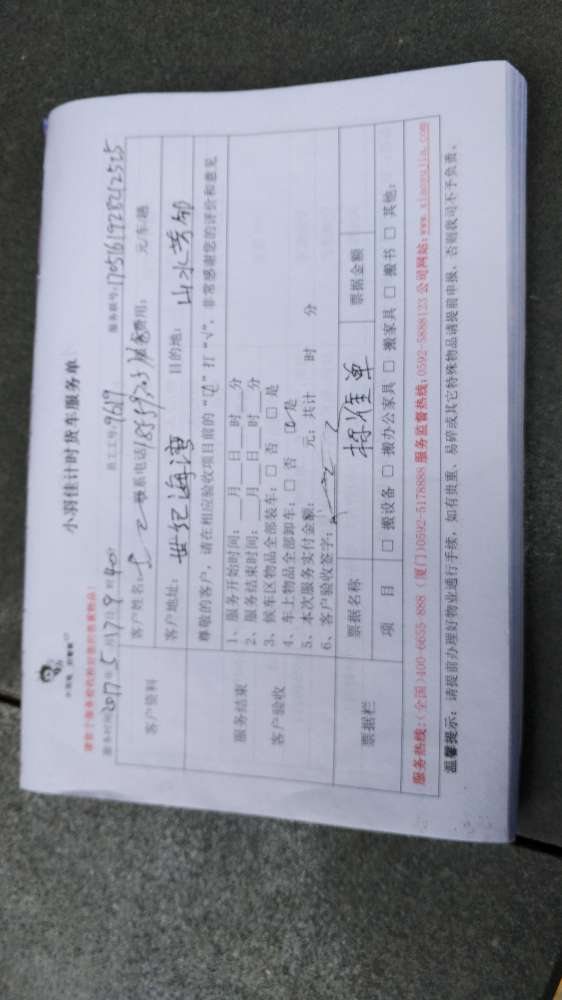 小羽佳计时货车服务单
服务时间 2017年5月17日9时40 员工工号:9619 服务账号:
客户资料
客户姓名: 联系电话 费用: 元/车/趟
客户地址: 世纪海湾 目的地: 山水芳邻
尊敬的客户,请在相应验收项目前的“☑”打“√”,非常感谢您的评价和意见
服务结束
客户验收
1、服务开始时间:__月__日__时__分
2、服务结束时间:__月__日__时__分
3、候车区物品全部装车:□ 否 □ 是
4、车上物品全部卸车:□ 否 ☑ 是
5、本次服务实付金额: 元;共计 时 分
6、客户验收签字:
票据栏
票据名称 标准单 票据金额
项 目 □ 搬设备 □ 搬办公家具 □ 搬家具 □ 搬书 □ 其他:
服务热线:(全国)400-6655-888 (厦门)0592-5178888 服务监督热线:0592-5888123 公司网站:www.xiaoyujia.com
温馨提示:请提前办理好物业通行手续,如有贵重、易碎或其它特殊物品请提前申报,否则我司不予负责。